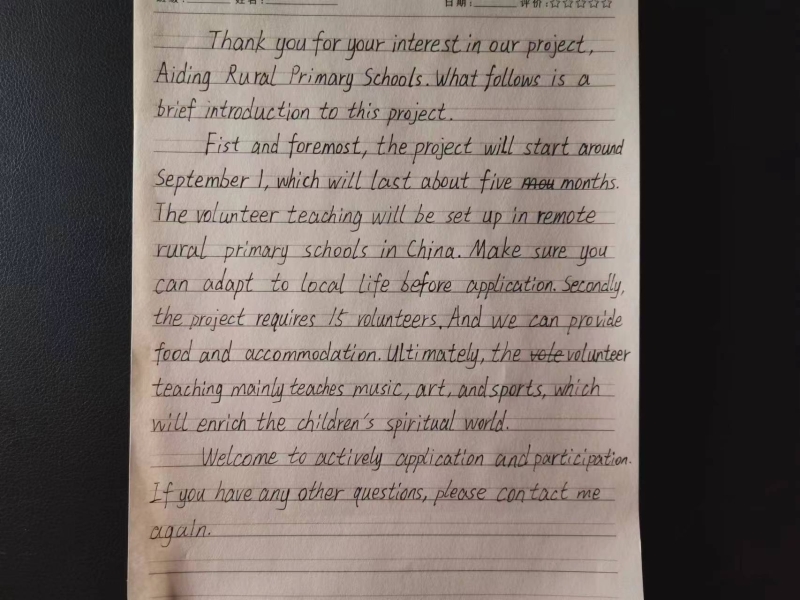 姓名:
日期: 评价:☆☆☆☆☆
Thank you for your interest in our project,
Aiding Rural Primary Schools. What follows is a
brief introduction to this project.
Fist and foremost, the project will start around
September 1, which will last about five mou months.
The volunteer teaching will be set up in remote
rural primary schools in China. Make sure you
can adapt to local life before application. Secondly,
the project requires 15 volunteers. And we can provide
food and accommodation. Ultimately, the vole volunteer
teaching mainly teaches music, art, and sports, which
will enrich the children's spiritual world.
Welcome to actively application and participation.
If you have any other questions, please contact me
again.